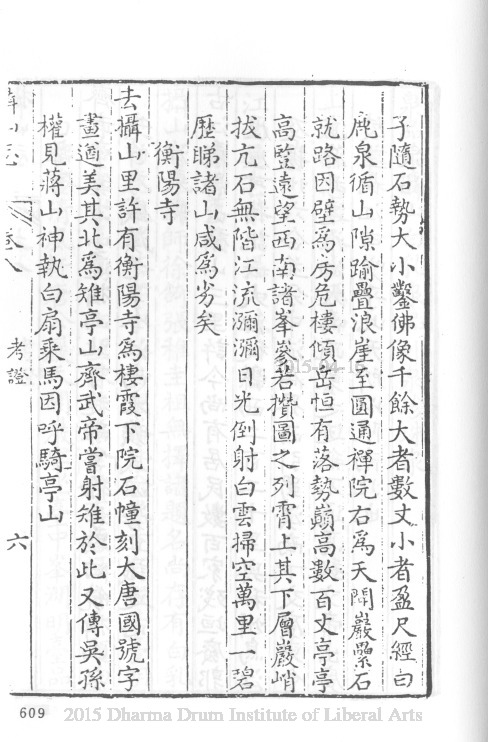 子隨石勢大小鑿佛像千餘大者數丈小者盈尺經白
鹿泉循山隙踰疊浪崖至圓通禪院右為天開巖纍石
就路因壁為房危樓傾岳恒有落勢巔高數百丈亭亭
高豎遠望西南諸峯參若攢圖之列霄上其下層巖峭
拔亢石無階江流瀰瀰日光倒射白雲掃空萬里一碧
歷睇諸山咸為劣矣
衡陽寺
去攝山里許有衡陽寺為棲霞下院石幢刻大唐國號字
畫遒美其北為雉亭山齊武帝嘗射雉於此又傳吳孫
權見蔣山神執白扇乘馬因呼騎亭山
卷八
考證
六
609
2015 Dharma Drum Institute of Liberal Arts